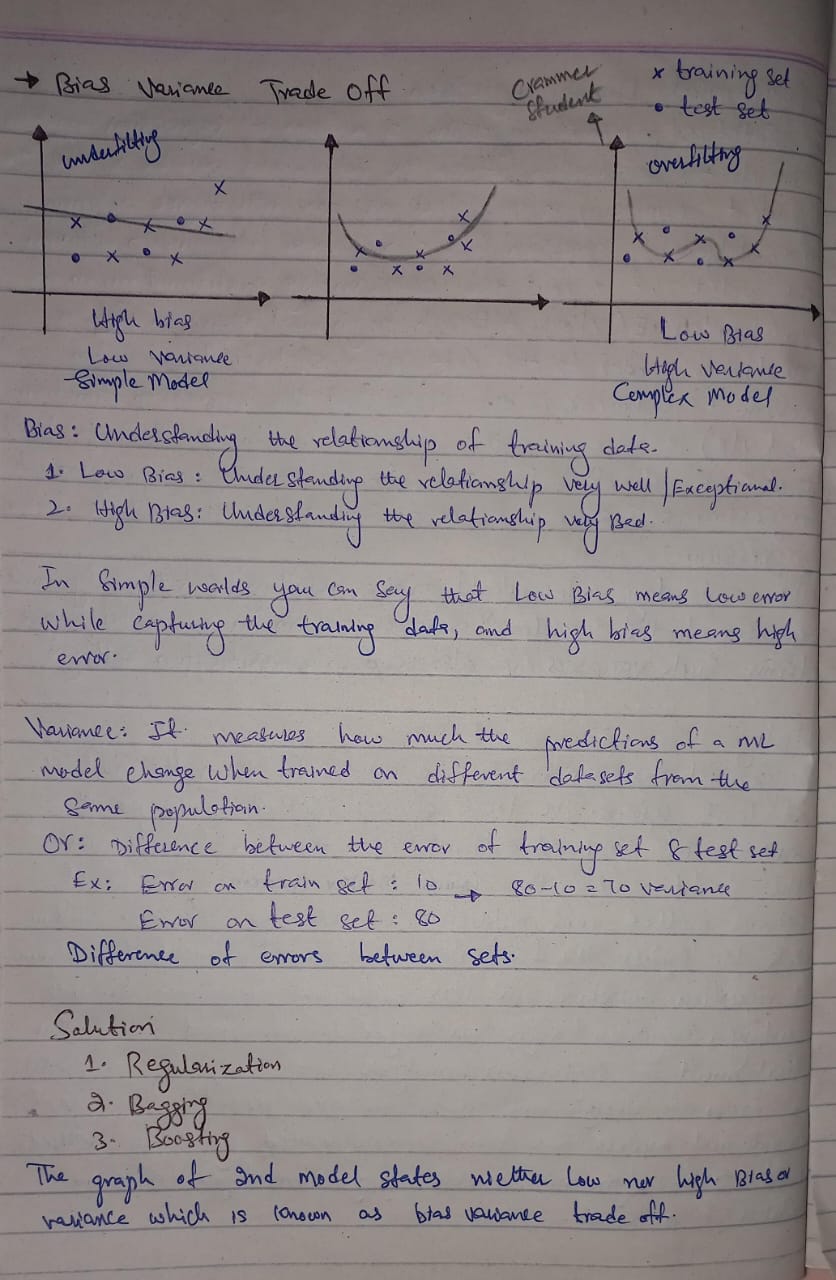 → Bias Variance Trade Off
Crammer
Student
x training set
• test set
underfitting
overfitting
High bias
Low Variance
Simple Model
Low Bias
High Variance
Complex Model
Bias: Understanding the relationship of training data.
1. Low Bias: Understanding the relationship very well / Exceptional.
2. High Bias: Understanding the relationship very Bad.
In Simple worlds you can say that Low Bias means low error
while capturing the training data, and high bias means high
error.
Variance: It measures how much the predictions of a ML
model change when trained on different datasets from the
same population.
Or: Difference between the error of training set & test set
Ex: Error on train set : 10 → 80-10 = 70 variance
Error on test set : 80
Difference of errors between sets.
Solution
1. Regularization
2. Bagging
3. Boosting
The graph of 2nd model states niether low nor high Bias or
variance which is known as bias variance trade off.